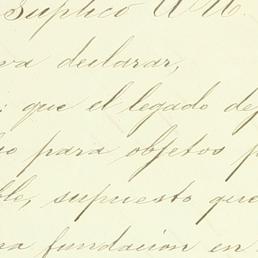 Suplico A U.
va declarar,
: que el legado de
o para objetos p
ble, supuesto que
ra fundación en